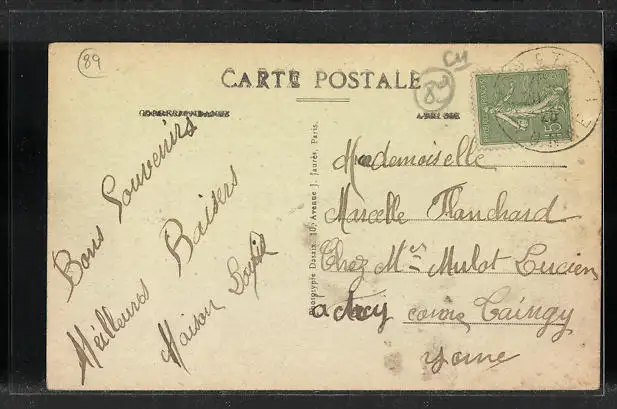 89
CARTE POSTALE
CORRESPONDANCE
ADRESSE
Bons Souvenirs
Meilleurs Baisers
Maison
Phototypie Dassis, 10, Avenue J. Jaurès, Paris.
15c
Mademoiselle
Marcelle Planchard
Chez Mrs Mulot Lucien
à comne Taingy
Yonne